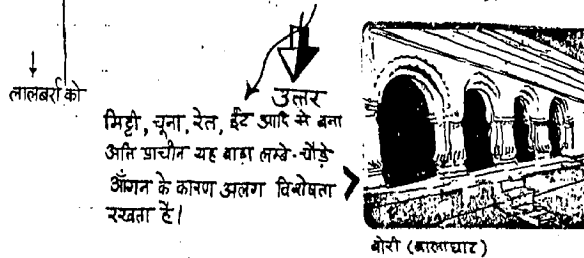 लालबर्रा को
उत्तर
मिट्टी, चूना, रेत, ईंट आदि से बना
अति प्राचीन यह बाड़ा लम्बे-चौड़े
आँगन के कारण अलग विशेषता
रखता है।
बोरी (बालाघाट)